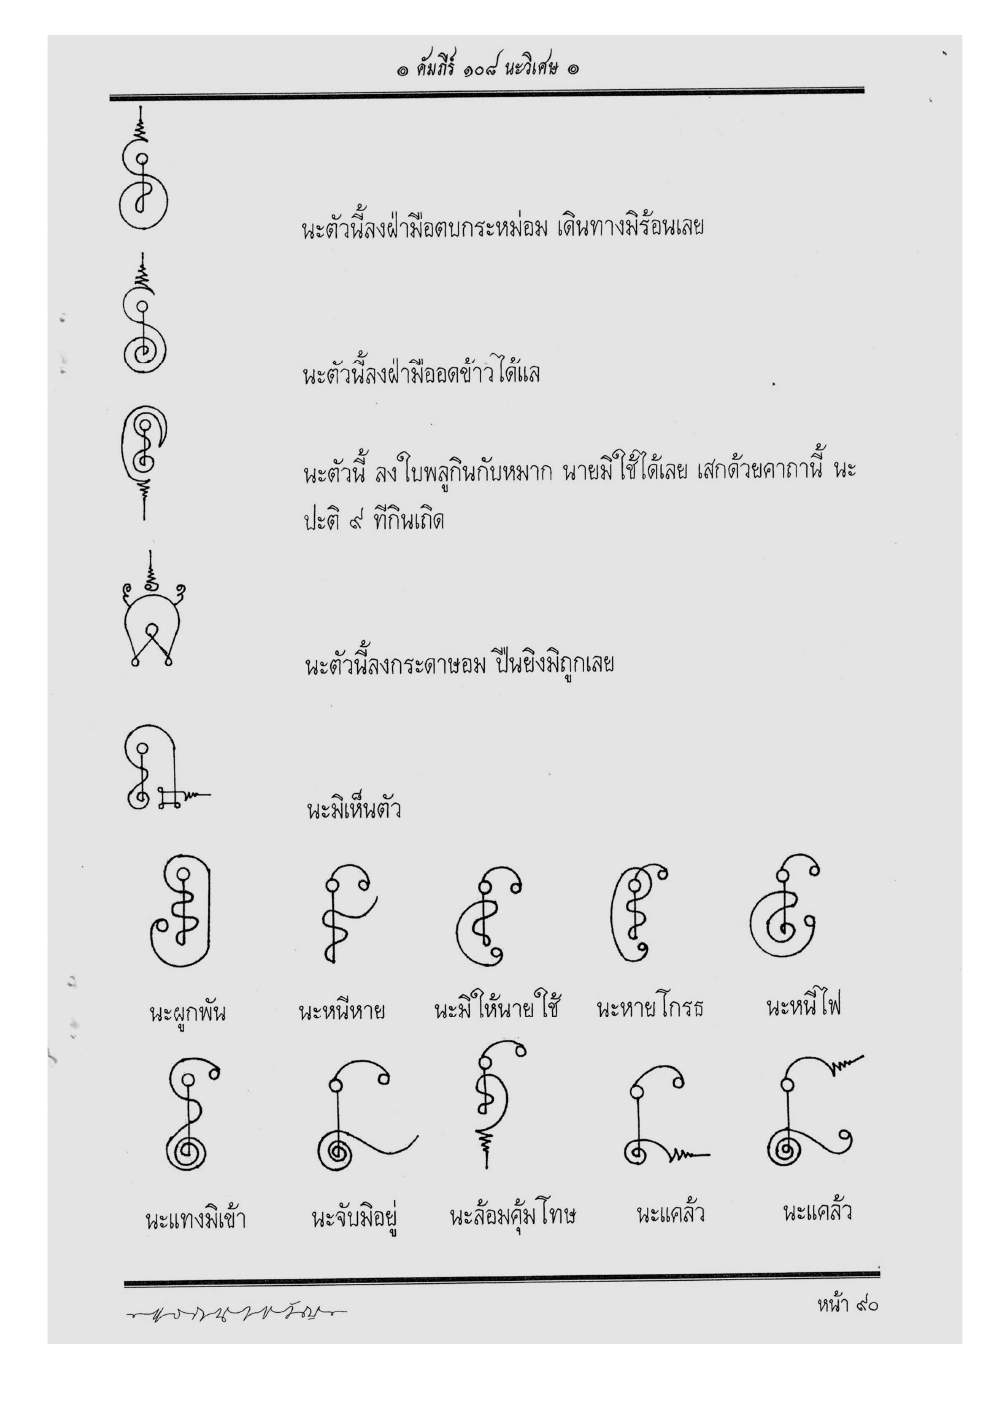 ๏ คัมภีร์ ๑๐๘ นะวิเศษ ๏
นะตัวนี้ลงฝ่ามือตบกระหม่อม เดินทางมิร้อนเลย
นะตัวนี้ลงฝ่ามืออดข้าวได้แล
นะตัวนี้ ลงใบพลูกินกับหมาก นายมิใช้ได้เลย เสกด้วยคาถานี้ นะ
ปะติ ๙ ทีกินเถิด
นะตัวนี้ลงกระดาษอม ปืนยิงมิถูกเลย
นะมิเห็นตัว
นะผูกพัน นะหนีหาย นะมิให้นายใช้ นะหายโกรธ นะหนีไฟ
นะแทงมิเข้า นะจับมิอยู่ นะล้อมคุ้มโทษ นะแคล้ว นะแคล้ว
หน้า ๙๐